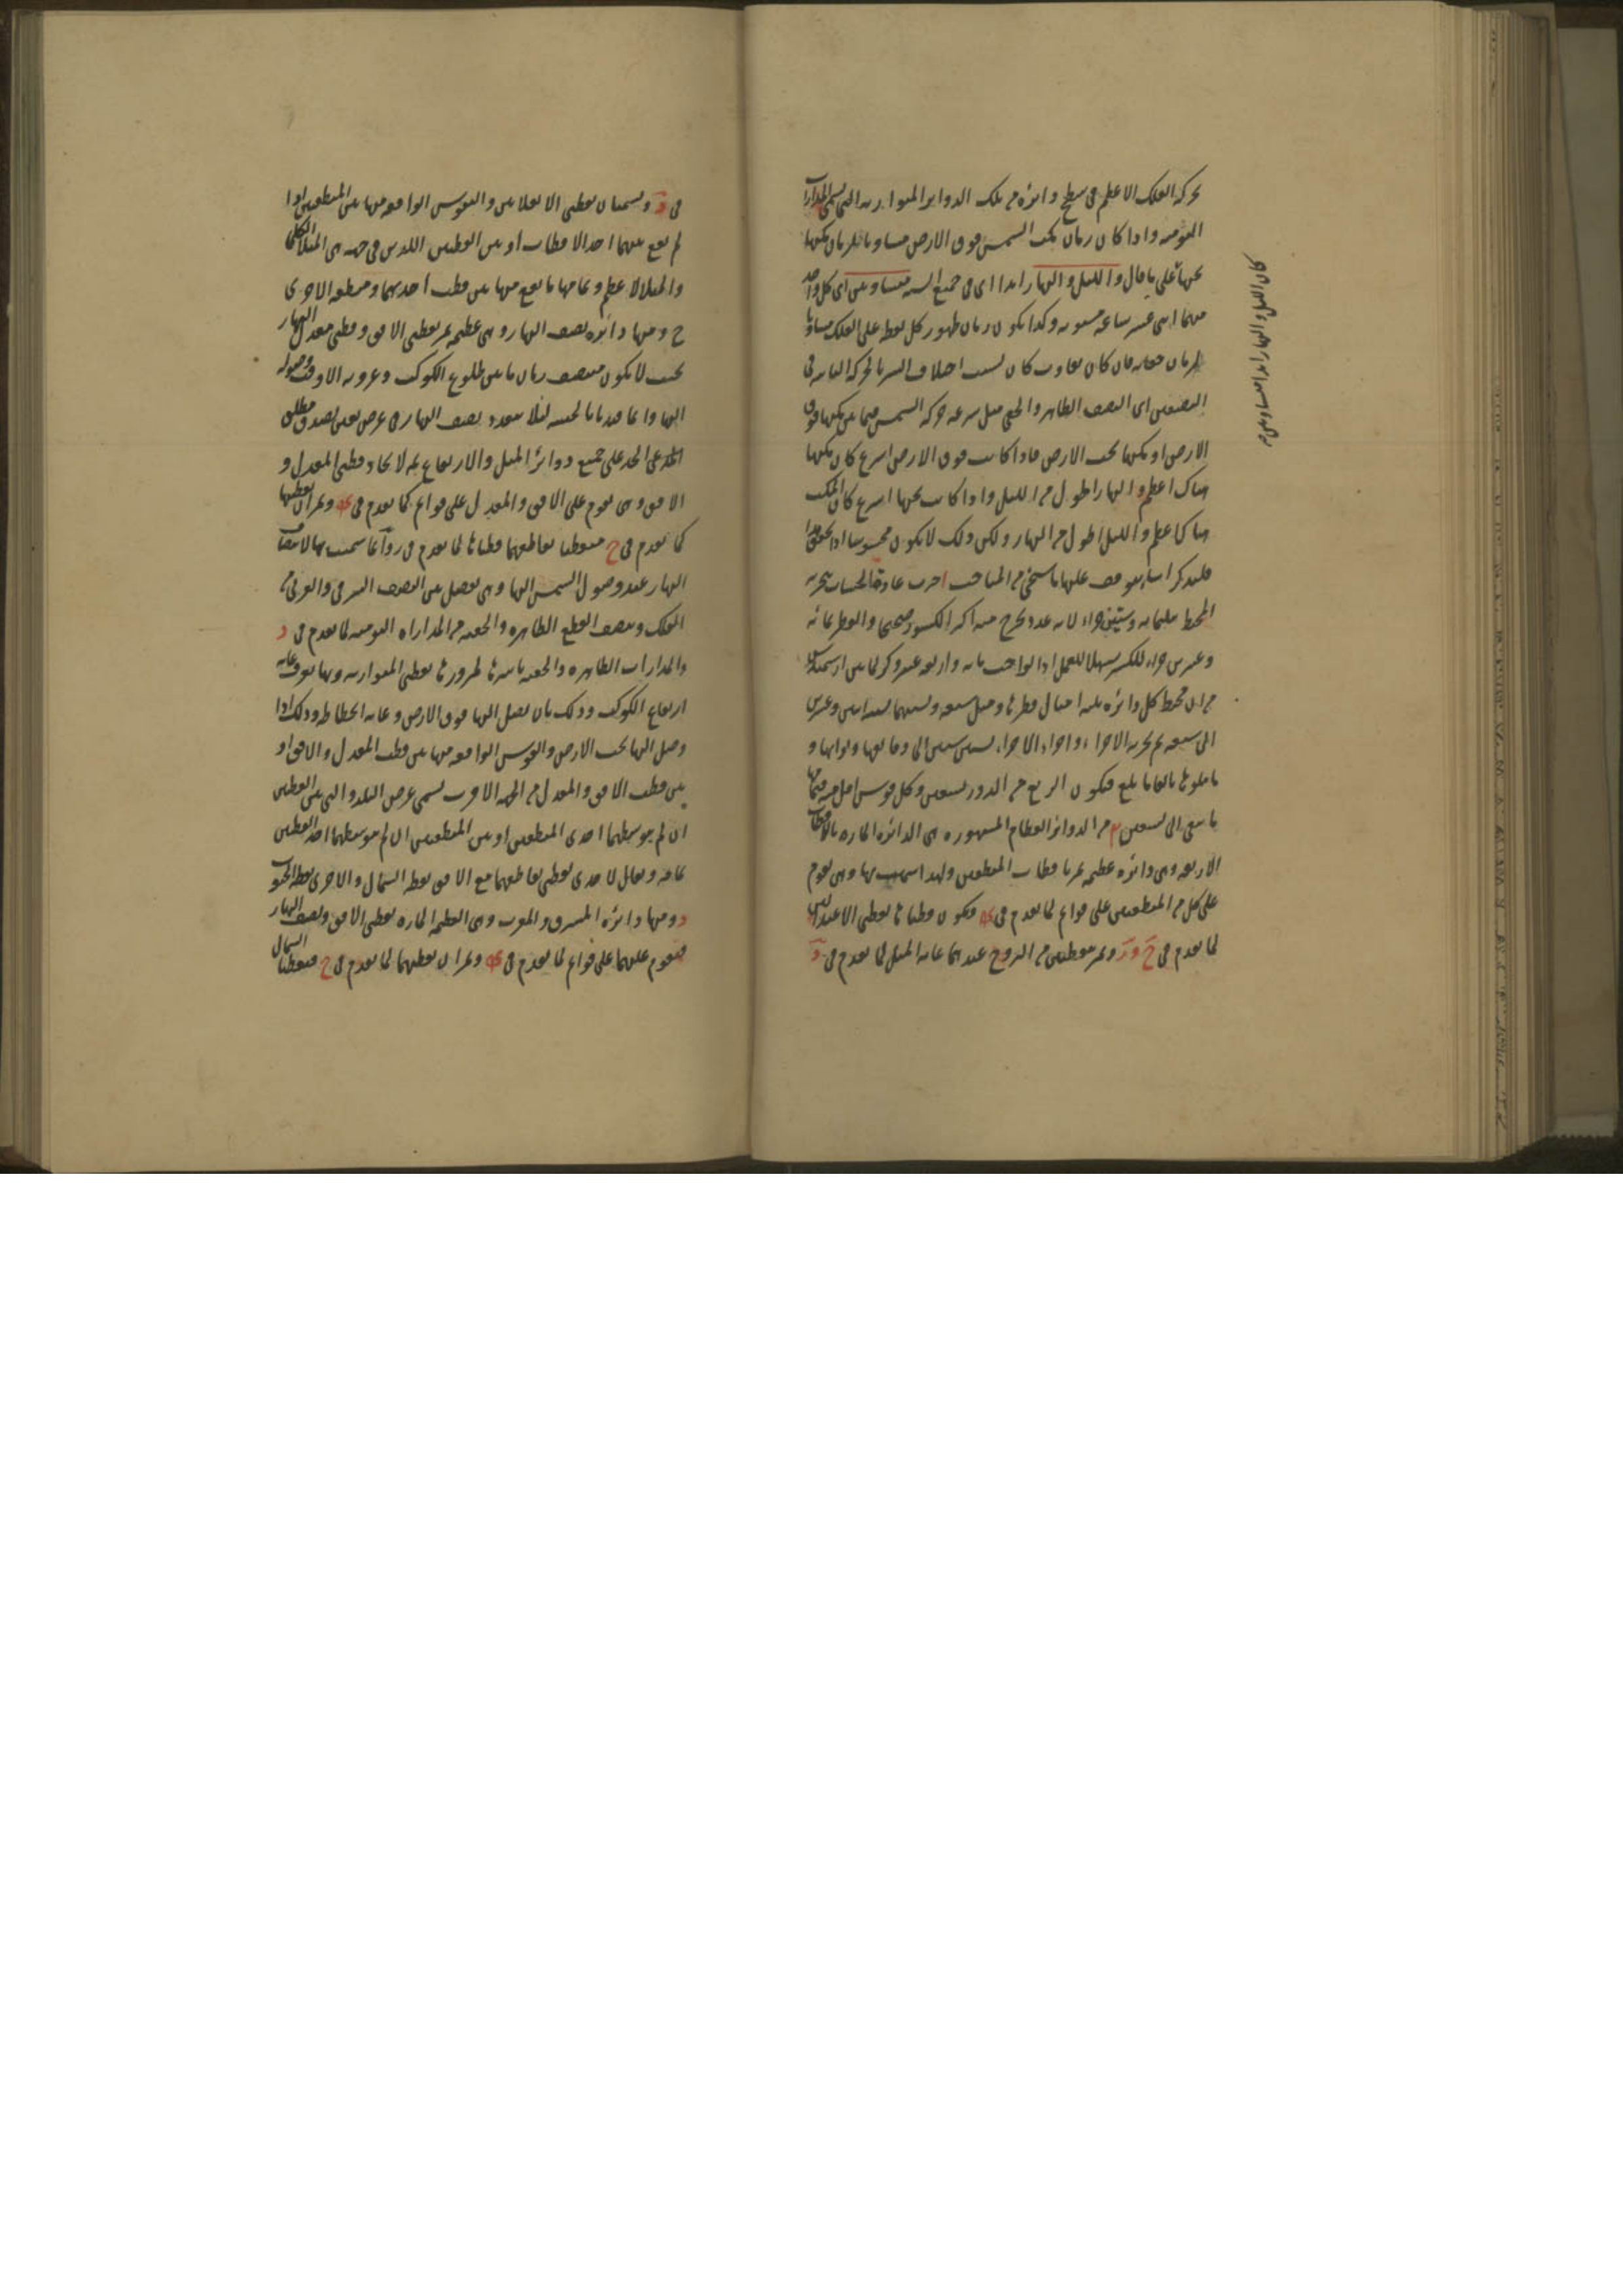 بحركة الفلك الاعظم فى سطح دائرة من تلك الدوائر المتوازية التى تسمى المدارات
اليومية واذا كان زمان مكث الشمس فوق الارض مساويا لزمان مكثها
تحتها على ما قال والليل والنهار ابدا اى فى جميع السنة متساويين اى كل واحد
منهما اثنى عشر ساعة مستوية وكذا يكون زمان ظهور كل نقطة على الفلك مساويا
لزمان خفائه فان كان تفاوت كان بسبب اختلاف السير بالحركة الثانية فى
النصفين اى النصف الظاهر والخفى مثل سرعة حركة الشمس فيما بين كونها فوق
الارض او كونها تحت الارض فاذا كانت فوق الارض اسرع كان مكثها
هناك اعظم والنهار اطول من الليل واذا كانت تحتها اسرع كان المكث
هناك اعظم والليل اطول من النهار ولكن ذلك لا يكون محسوسا
فلنذكر اشياء يتوقف عليها ما سيجئ من المباحث جرت عادة الحساب بتجزية
المحيط بثلثمائة وستين جزءا لانه عدد يخرج منه اكثر الكسور صحيحا والقطر بمائة
وعشرين جزءا للكسر تسهيلا للعمل اذ الواجب مائة واربعة عشر وكسر لما بين ارشميدس
من ان محيط كل دائرة ثلثة امثال قطرها ومثل سبعه ونسبتهما نسبة اثنين وعشرين
الى سبعة ثم تجزية الاجزاء واجزاء الاجزاء بستين ستين الى دقائقها وثوانيها و
ما يتلوها بالغا ما بلغ فيكون الربع من الدور تسعين وكل قوس اقل منه فتمامها
ما يبقى الى تسعين ومن الدوائر العظام المشهورة هى الدائرة المارة بالاقطاب
الاربعة وهى دائرة عظيمة تمر باقطاب المنطقتين ولهذا سميت بها وهى تقوم
على كل من المنطقتين على قوائم لما تقدم فى ويكون قطباها نقطتى الاعتدالين
لما تقدم فى ح و ز وتمر بنقطتين من البروج عندهما غاية الميل لما تقدم فى د
فى د وتسميان نقطتى الانقلابين والقوس الواقعة منها بين المنطقتين اذا
لم يقع بينهما احد الاقطاب او بين القطبين اللذين فى جهة هى الميل الكلى
والميل الاعظم وتمامها ما يقع منها بين قطب احديهما ومنطقة الاخرى
ح ومنها دائرة نصف النهار وهى عظيمة تمر بقطبى الافق وقطبى معدل النهار
بحيث لا يكون منتصف زمان ما بين طلوع الكوكب وغروبه الا وقت وصوله
اليها وانما قيدنا بالحيثية لئلا يتعدد نصف النهار فى عرض تسعين لصدق مطلق
الحد على جميع دوائر الميل والارتفاع ثمة لاتحاد قطبى المعدل و
الافق وهى تقوم على الافق والمعدل على قوائم لما تقدم فى وتمران بقطبيها
لما تقدم فى ح فنقطتا تقاطعهما قطباها لما تقدم فى ز وانما سميت بها لانتصاف
النهار عند وصول الشمس اليها وهى تفصل بين النصف الشرقى والغربى من
الفلك وتنصف القطع الظاهرة والخفية من المدارات اليومية لما تقدم فى د
والمدارات الظاهرة والخفية باسرها لمرورها بقطبى المتوازية وبها يعرف غاية
ارتفاع الكوكب وذلك بان يصل اليها فوق الارض وغاية انحطاطه وذلك اذا
وصل اليها تحت الارض والقوس الواقعة منها بين قطب المعدل والافق او
بين قطب الافق والمعدل من الجهة الاقرب تسمى عرض البلد والتى بين القطبين
ان لم يتوسطهما احدى المنطقتين او بين المنطقتين ان لم يتوسطهما احد القطبين
تمامه ويقال لاحدى نقطتى تقاطعهما مع الافق نقطة الشمال والاخرى نقطة الجنوب
د ومنها دائرة المشرق والمغرب وهى العظيمة المارة بقطبى الافق ونصف النهار
فتقوم عليهما على قوائم لما تقدم فى وتمران بقطبيها لما تقدم فى ح فنقطتا الشمال